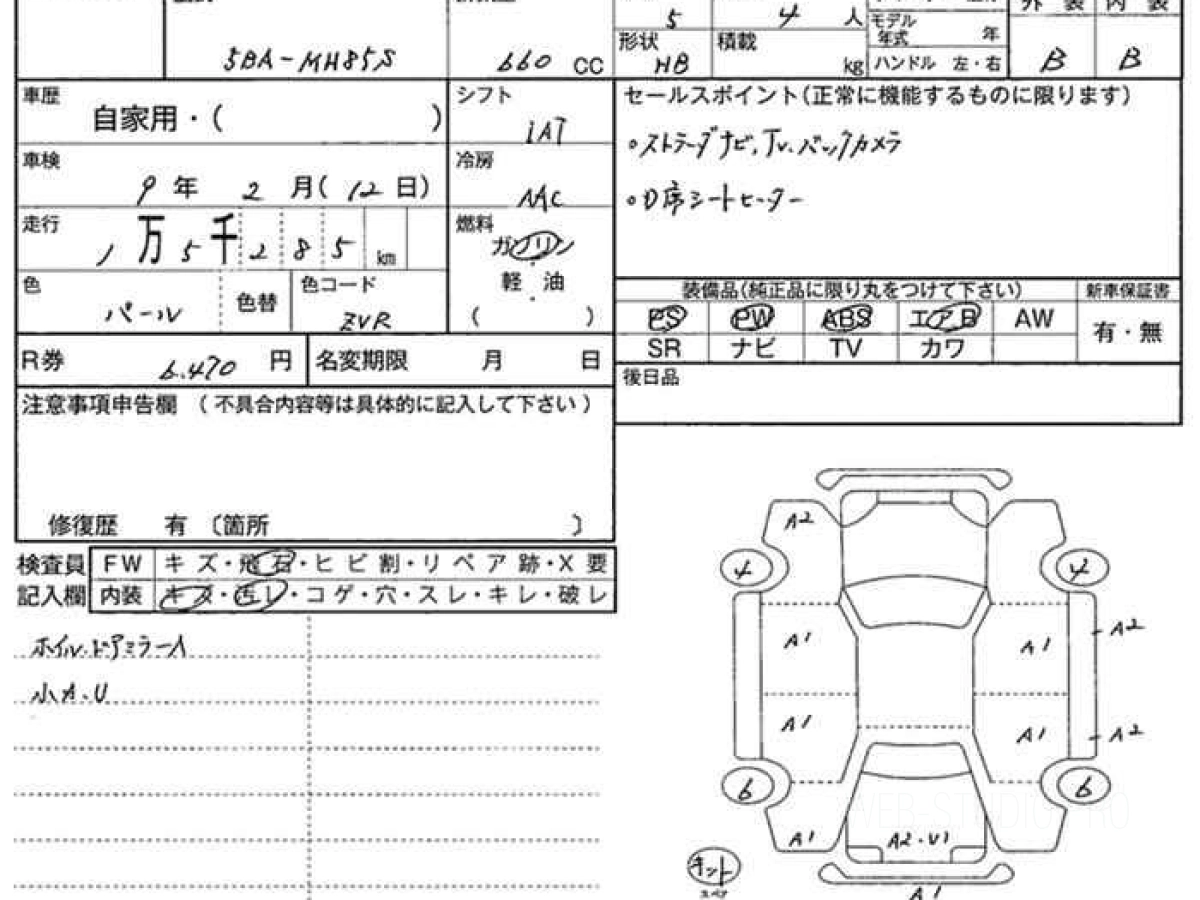 5 4 人 モデル 年式 年 外装 内装
5BA-MH85S 660 CC 形状 HB 積載 kg ハンドル 左・右 B B
車歴 自家用・( ) シフト IAT
セールスポイント(正常に機能するものに限ります)
。ストラーダナビ、Tv.バックカメラ
車検 9年 2月(12日) 冷房 AAC
。D席シートヒーター
走行 1万5千285km 燃料 ガソリン
軽油
( )
色 パール 色替 色コード ZVR
装備品(純正品に限り丸をつけて下さい) 新車保証書
PS PW ABS エアB AW 有・無
SR ナビ TV カワ
R券 6.470 円 名変期限 月 日
後日品
注意事項申告欄 (不具合内容等は具体的に記入して下さい)
修復歴 有 〔箇所 〕
検査員 FW キズ・飛石・ヒビ割・リペア跡・X要
記入欄 内装 キズ・汚レ・コゲ・穴・スレ・キレ・破レ
ホイル.ドアミラーA
小A.U
A2
4 4
A1 A1 A2
A1 A1 A2
6 6
WEB-STUDIO.PRO
A1 A2・U1
キット
スペア
A1